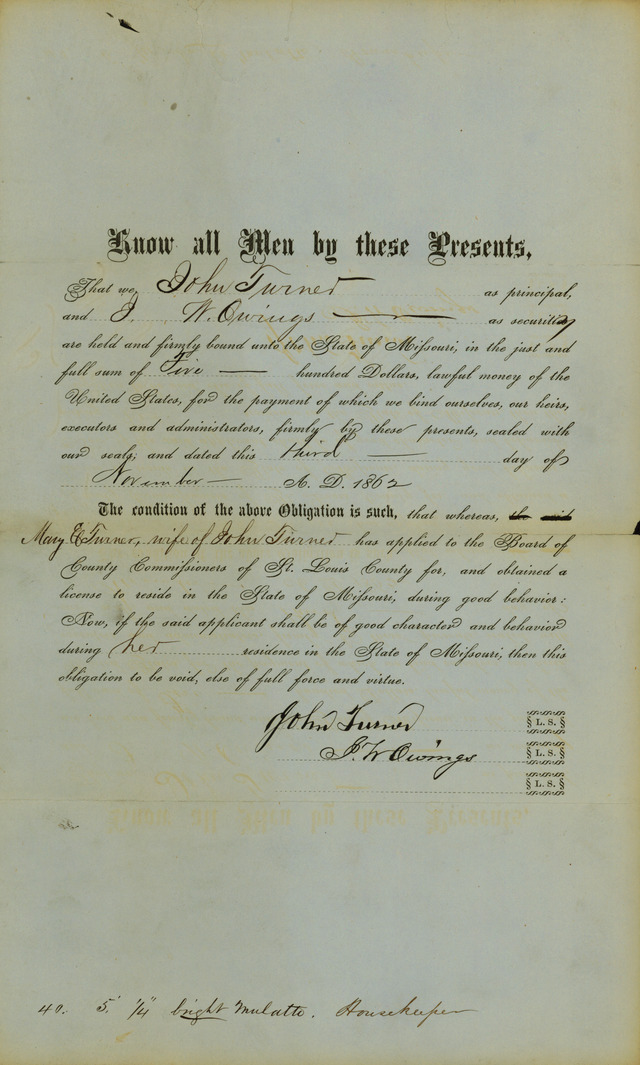 Know all Men by these Presents,
That we, John Turner as principal,
and J. W. Owings as security
are held and firmly bound unto the State of Missouri, in the just and
full sum of Five hundred Dollars, lawful money of the
United States, for the payment of which we bind ourselves, our heirs,
executors and administrators, firmly by these presents, sealed with
our seals; and dated this third day of
November A. D. 1862
The condition of the above Obligation is such, that whereas, the said
Mary E Turner, wife of John Turner has applied to the Board of
County Commissioners of St. Louis County for, and obtained a
license to reside in the State of Missouri, during good behavior:
Now, if the said applicant shall be of good character and behavior
during her residence in the State of Missouri, then this
obligation to be void, else of full force and virtue.
John Turner L. S.
J. W Owings L. S.
L. S.
40. 5' 1/4" bright Mulatto. Housekeeper